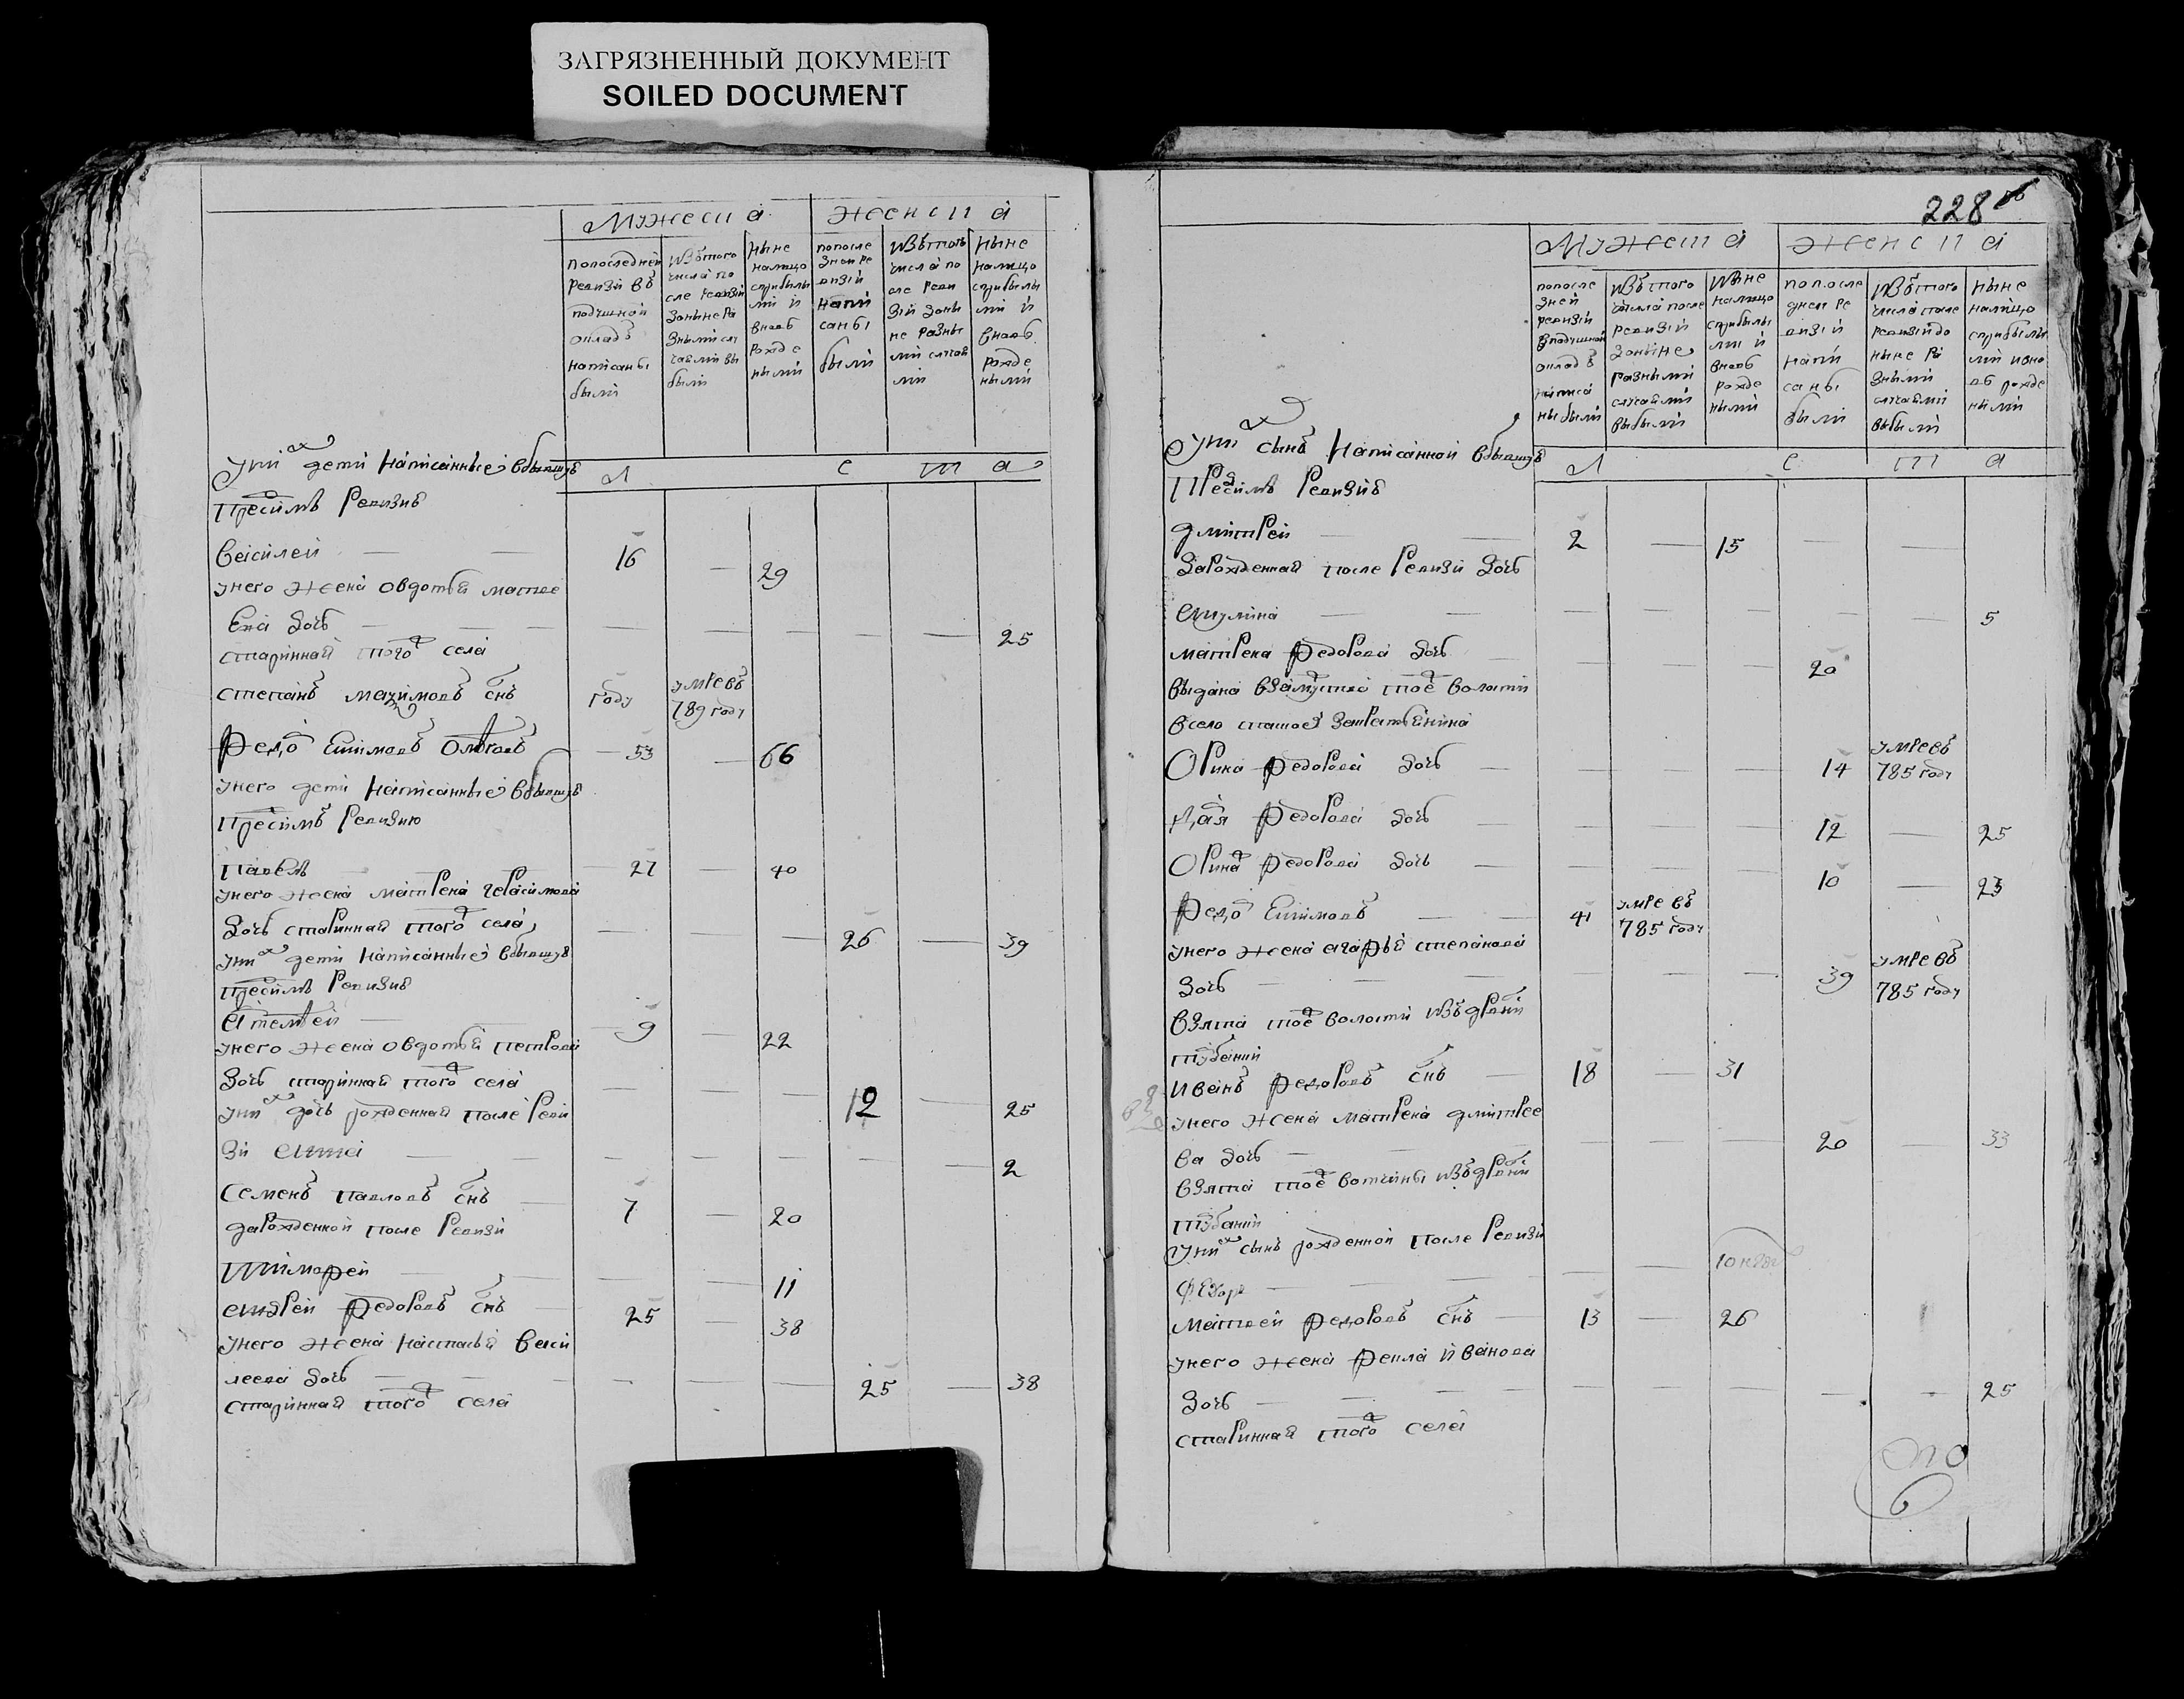 ЗАГРЯЗНЕННЫЙ ДОКУМЕНТ
SOILED DOCUMENT
Мужеска
Женска
по последней ревизіи въ подушной окладъ написаны были
изъ того числа после ревизіи до ныне разными случаями выбыли
ныне налицо с прибылыми и вновь рождеными
по последней ревизіи написаны были
изъ того числа после ревизіи доныне разными случаями
ныне налицо с прибылыми и вновь рождеными
Л е т а
у них дети написанные в бывшую
пред симъ ревизию
Василей — 16 — 29
у него жена овдотья матве
ева дочь — 25
старинная того села
степанъ максимовъ снъ году умре въ 789 году
Федоръ Ефимовъ 53 — 66
у него дети написанные в бывшую
пред симъ ревизию
Павелъ — 27 — 40
у него жена матрена герасимова
дочь старинная того села — 26 — 39
у них дети написанные в бывшую
пред симъ ревизию
Артемей — 9 — 22
у него жена овдотья петрова
дочь старинная того села — 12 — 25
у них дочь рожденная после реви
зіи анна — 2
Семенъ павловъ снъ — 7 — 20
да рожденной после ревизіи
Тимофей — 11
андрей федоровъ снъ — 25 — 38
у него жена настасья васи
леева дочь — 25 — 38
старинная того села
228
Мужеска
Женска
по последней ревизіи в подушной окладъ написаны были
изъ того числа после ревизіи до ныне разными случаями выбыли
ныне налицо с прибылыми и вновь рождеными
по последней ревизіи написаны были
изъ того числа после ревизіи до ныне разными случаями выбыли
ныне налицо с прибылыми и вновь рождеными
Л е т а
у них сынъ написанной в бывшую
пред симъ ревизию
дмитрей — 2 — 15
да рожденная после ревизіи дочь
акулина — 5
матрена федорова дочь — 20
выдана в замуство той волости
в село
Орина федорова дочь — 14 умре въ 785 году
федорова дочь — 12 — 25
Орина федорова дочь — 10 — 23
Федоръ Ефимовъ — 41 умре въ 785 году
у него жена агафья степанова
дочь — 39 умре въ 785 году
взята той волости изъ дрвни
Иванъ федоровъ снъ — 18 — 31
у него жена матрена дмитрее
ва дочь — 20 — 33
взята той вотчины изъ дрвни
у них сынъ рожденной после ревизіи
Федоръ — 10 нед
Матвей федоровъ снъ — 13 — 26
у него жена фекла иванова
дочь — 25
старинная того села